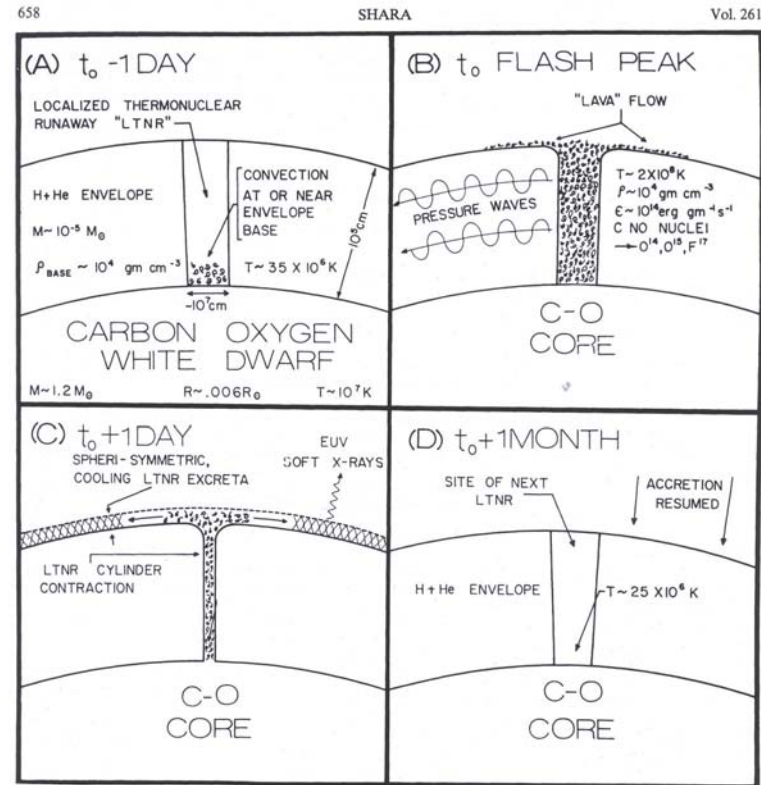 658 SHARA Vol. 261
(A) t₀ -1 DAY
LOCALIZED THERMONUCLEAR
RUNAWAY "LTNR"
H+He ENVELOPE
M~10⁻⁵ M☉
ρBASE ~ 10⁴ gm cm⁻³
CONVECTION
AT OR NEAR
ENVELOPE
BASE
T~35 X 10⁶K
10⁵cm
~10⁷cm
CARBON OXYGEN
WHITE DWARF
M~1.2M☉ R~.006R☉ T~10⁷K
(B) t₀ FLASH PEAK
"LAVA" FLOW
PRESSURE WAVES
T~2X10⁸K
ρ~10⁴gm cm⁻³
ϵ~10¹⁴erg gm⁻¹s⁻¹
C NO NUCLEI
→O¹⁴,O¹⁵,F¹⁷
C-O
CORE
(C) t₀+1DAY
SPHERI-SYMMETRIC,
COOLING LTNR EXCRETA
EUV
SOFT X-RAYS
LTNR CYLINDER
CONTRACTION
C-O
CORE
(D) t₀+1MONTH
SITE OF NEXT
LTNR
ACCRETION
RESUMED
H+He ENVELOPE
T~25 X10⁶ K
C-O
CORE